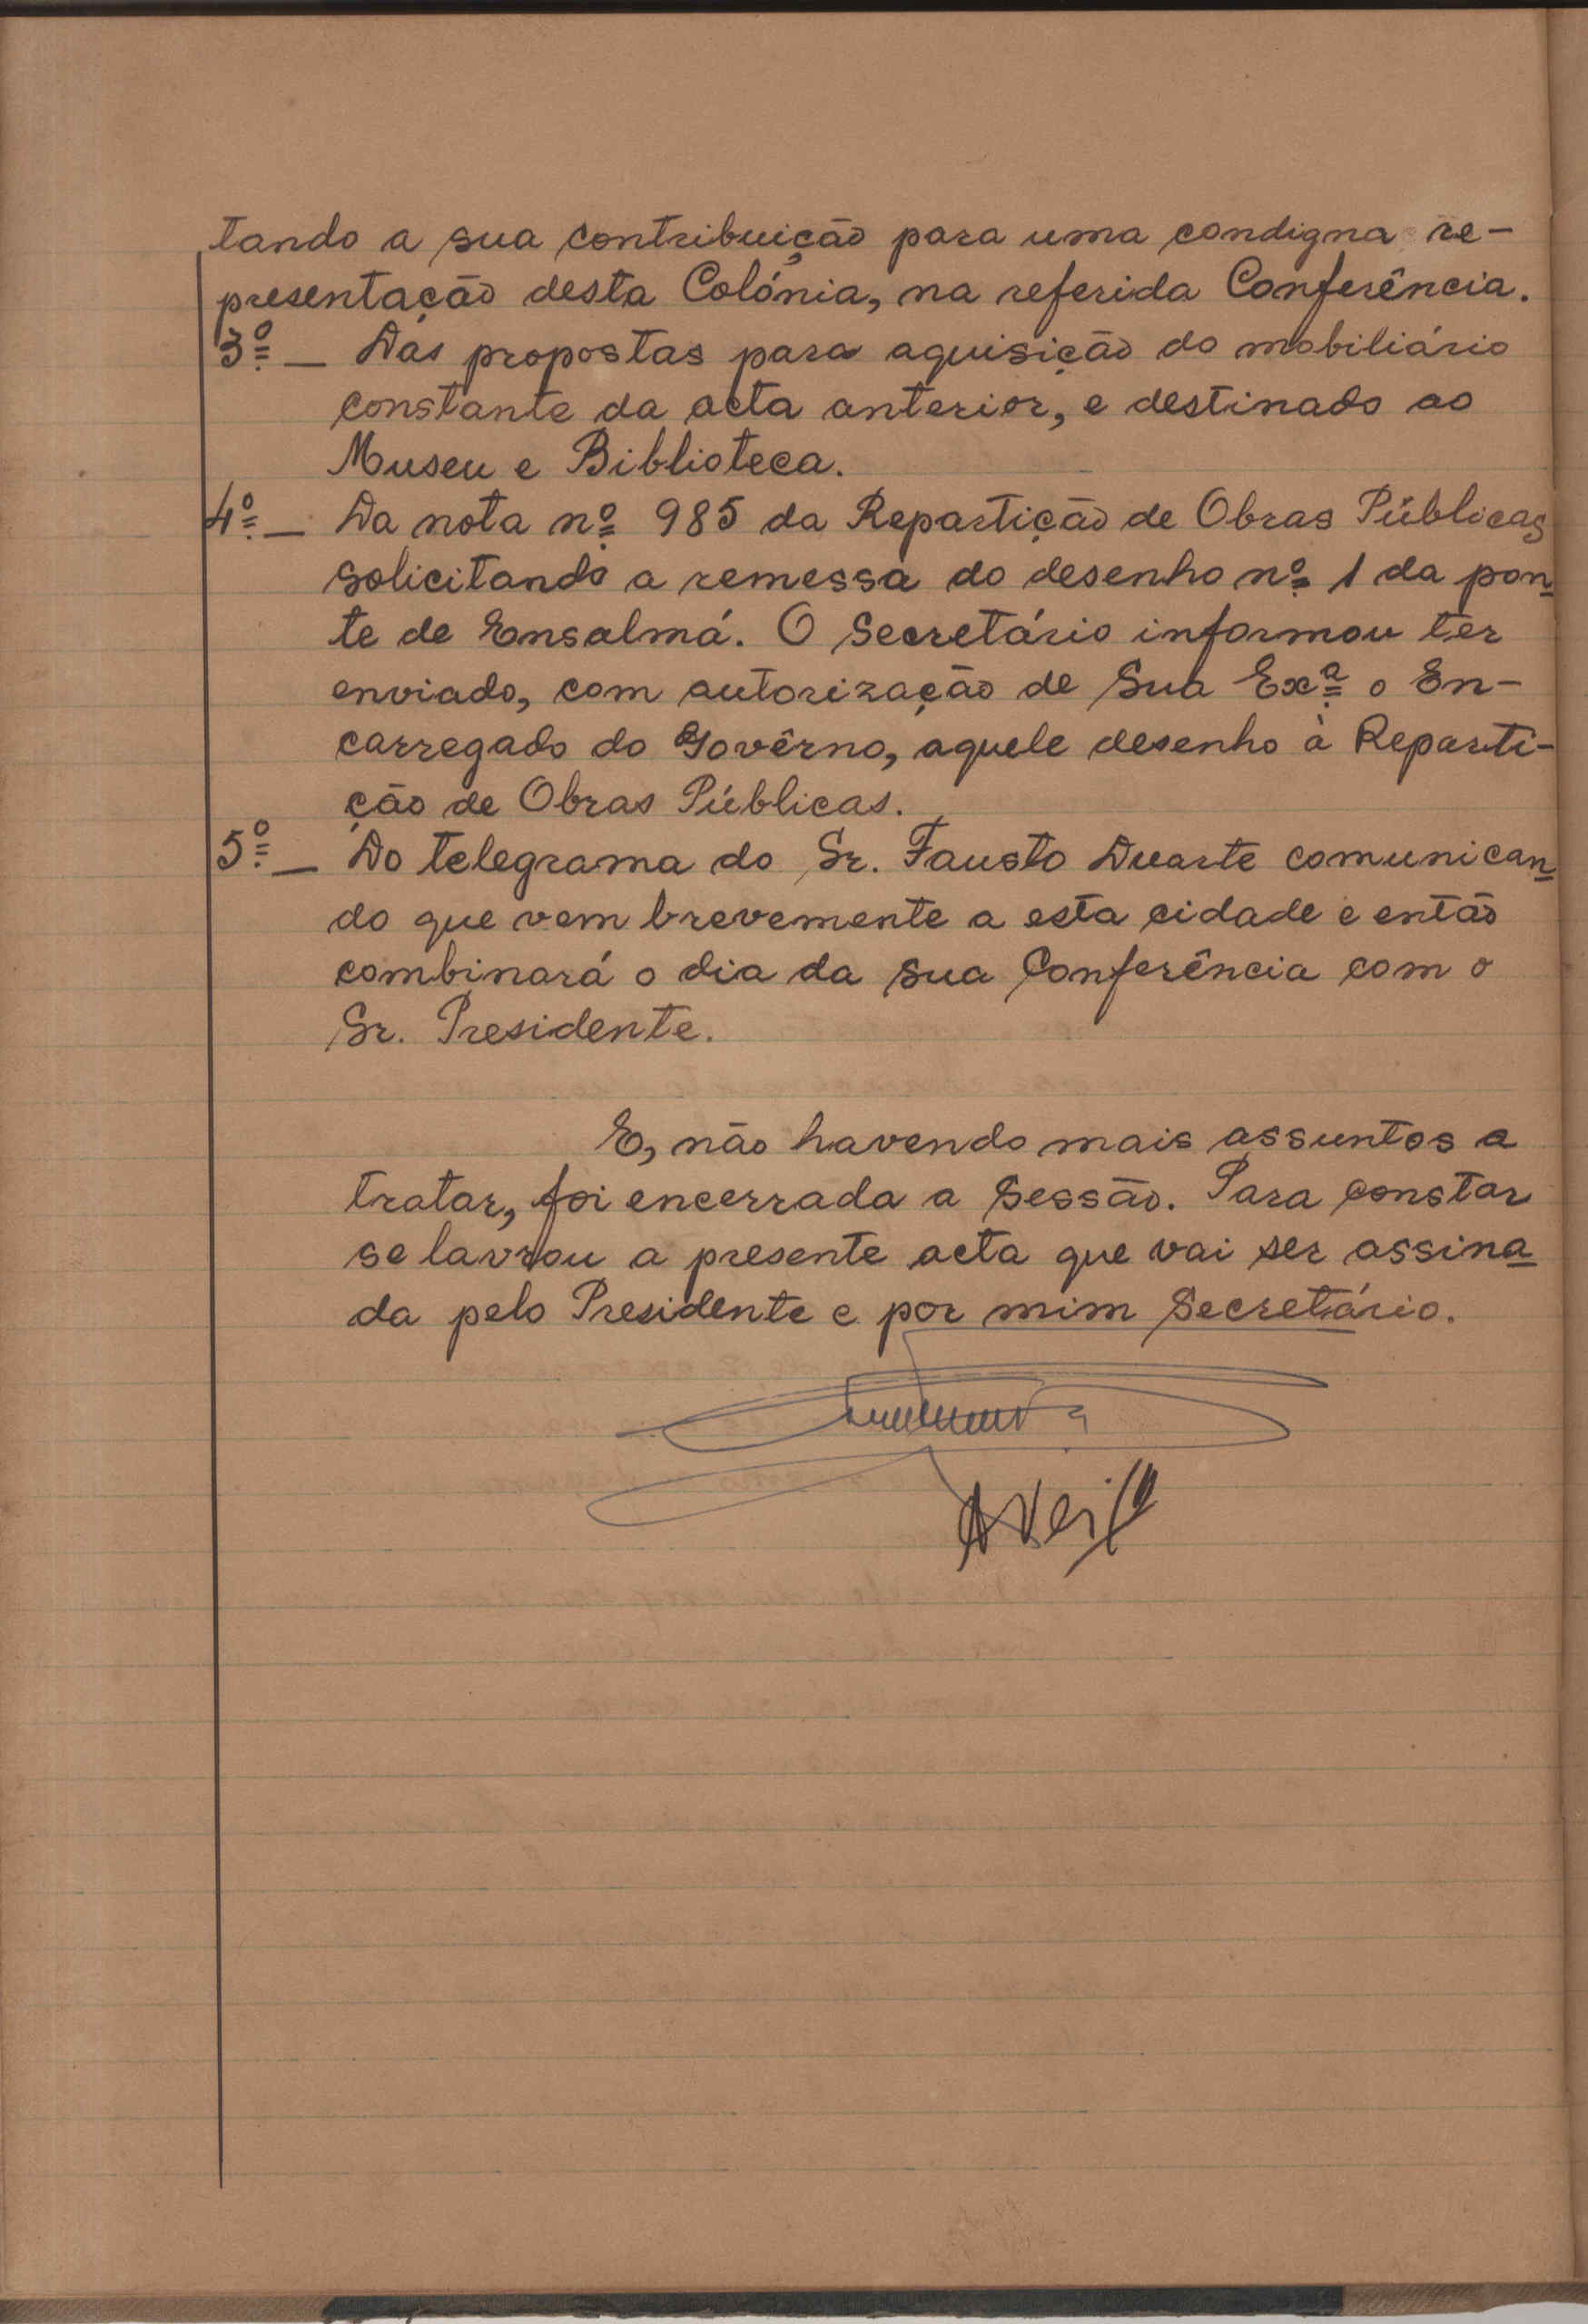 tando a sua contribuição para uma condigna re-
presentação desta Colónia, na referida Conferência.
3º — Das propostas para aquisição do mobiliário
constante da acta anterior, e destinado ao
Museu e Biblioteca.
4º — Da nota nº 985 da Repartição de Obras Públicas
solicitando a remessa do desenho nº 1 da pon-
te de Ensalmá. O Secretário informou ter
enviado, com autorização de Sua Exª o En-
carregado do Govêrno, aquele desenho à Reparti-
ção de Obras Públicas.
5º — Do telegrama do Sr. Fausto Duarte comunican-
do que vem brevemente a esta cidade e então
combinará o dia da sua Conferência com o
Sr. Presidente.
E, não havendo mais assuntos a
tratar, foi encerrada a Sessão. Para constar
se lavrou a presente acta que vai ser assina-
da pelo Presidente e por mim Secretário.